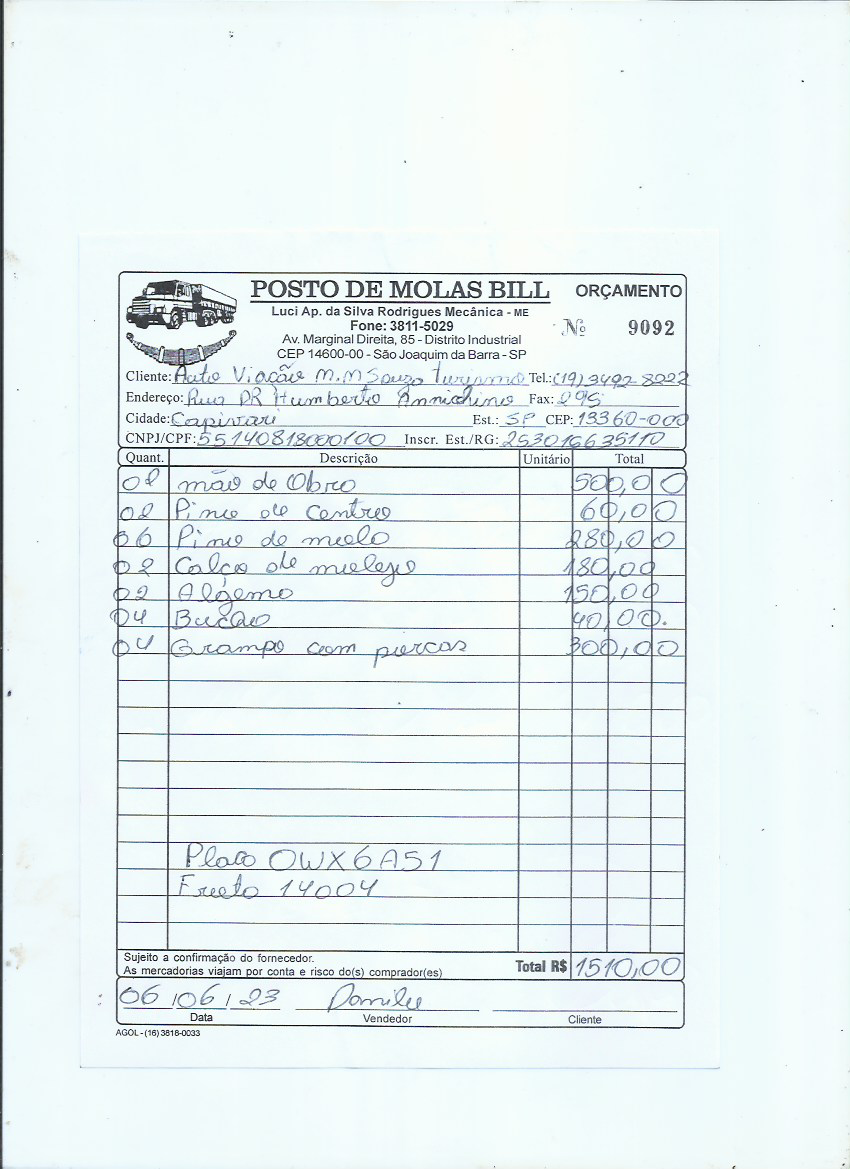 POSTO DE MOLAS BILL ORÇAMENTO
Luci Ap. da Silva Rodrigues Mecânica - ME
Fone: 3811-5029 Nº 9092
Av. Marginal Direita, 85 - Distrito Industrial
CEP 14600-00 - São Joaquim da Barra - SP
Cliente: Auto Viação M.M Souza Turismo Tel.: (19) 3492-8022
Endereço: Rua DR Humberto Annichino Fax: 295
Cidade: Capivari Est.: SP CEP: 13360-000
CNPJ/CPF: 55140818000100 Inscr. Est./RG: 253016635110
Quant. Descrição Unitário Total
02 mão de Obra 500,00
02 Pino de Centro 60,00
06 Pino de mola 280,00
02 Calço de 180,00
02 Algema 150,00
04 Bucão 40,00.
04 Grampo com porcas 300,00
Placa OWX6A51
14004
Sujeito a confirmação do fornecedor.
As mercadorias viajam por conta e risco do(s) comprador(es) Total R$ 1510,00
06/06/23
Data Vendedor Cliente
AGOL - (16) 3818-0033